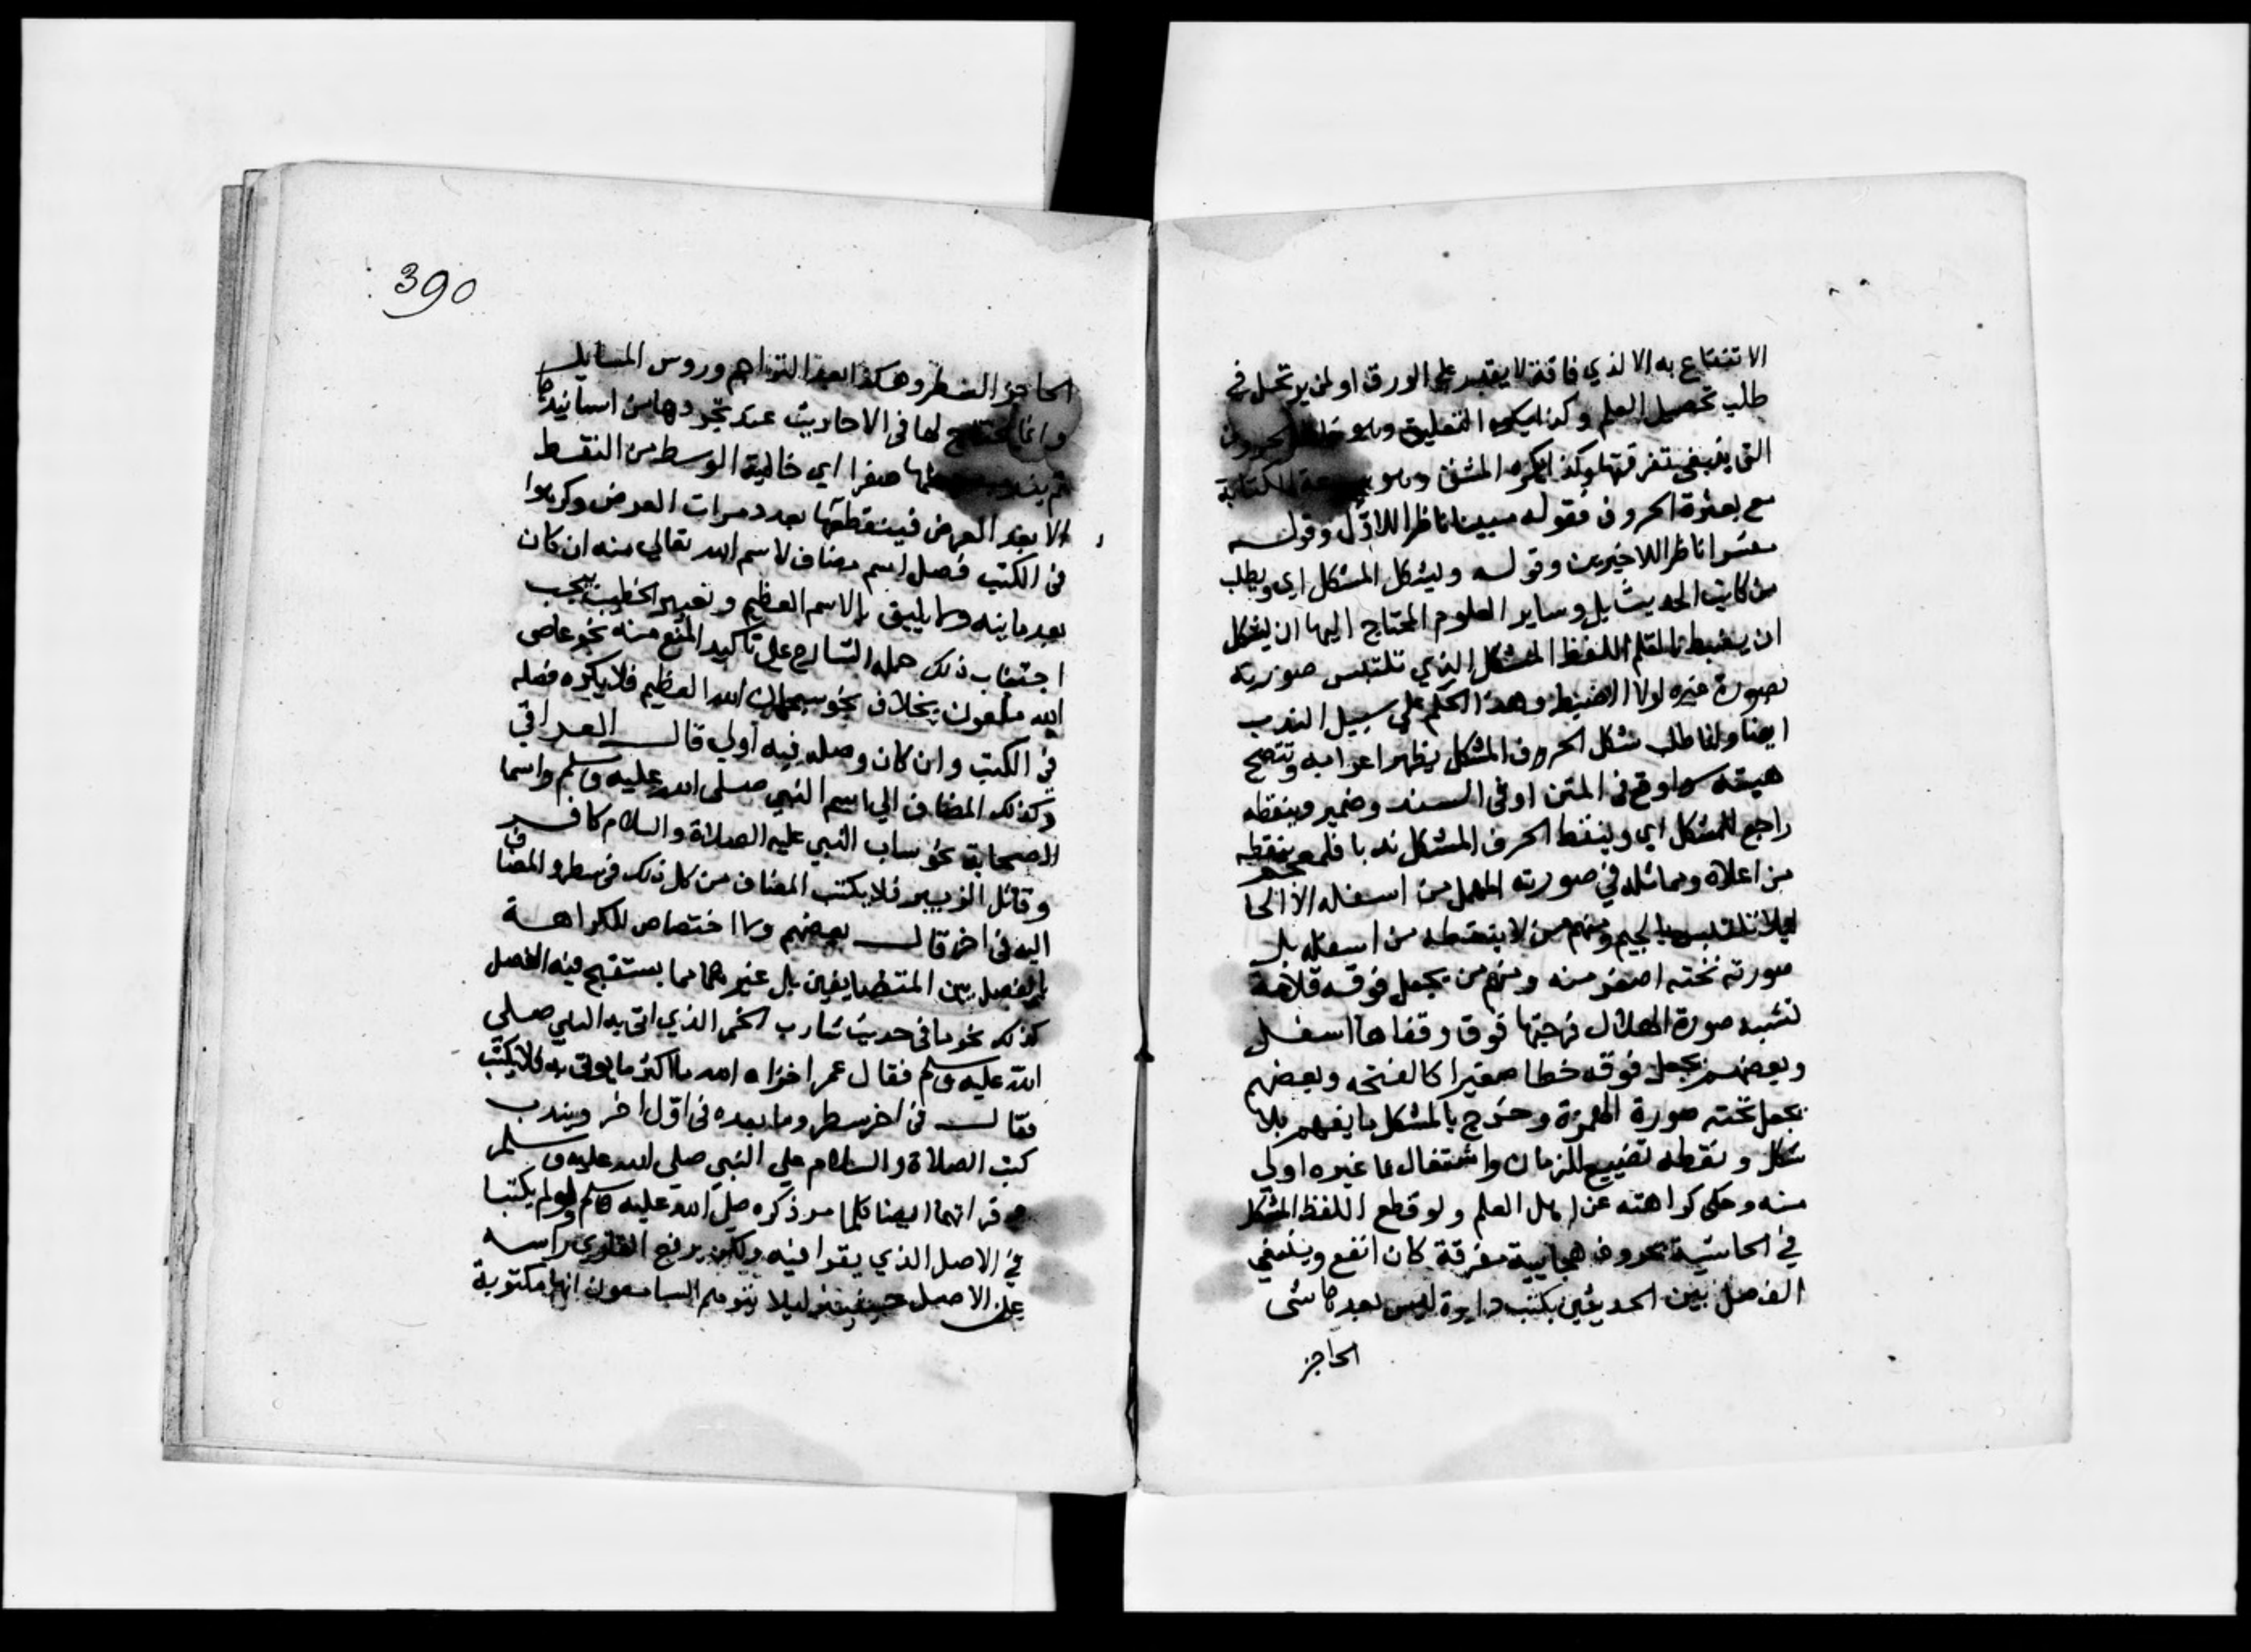 الانتفاع به الا لذي فاقة لا يقدر علي الورق او لمن يرتحل في
طلب تحصيل العلم وكذا يكره التعليق وهو خلط الحروف
التي ينبغي تفرقتها وكذا يكره المشق وهو سرعة الكتابة
مع بعثرة الحروف فقوله مبينا ناظرا للاول وقوله
مفسرا ناظرا للاخيرين وقوله وليشكل المشكل اي ويطلب
من كاتب الحديث بل وساير العلوم المحتاج اليها ان يشكل
ان يضبط بالقلم اللفظ المشكل الذي تلتبس صورته
بصورة غيره لولا الضبط وهذا الحكم علي سبيل الندب
ايضا وانما طلب شكل الحرف المشكل ليظهر اعرابه وتتضح
هيئته سوا وقع في المتن او في السند وضمير وينقطه
راجع للمشكل اي ولينقط الحرف المشكل ندبا فالمعجم ينقطه
من اعلاه ومماثله في صورته المهمل من اسفله الا الحا
ليلا تلتبس بالجيم ومنهم من لا ينقطه من اسفله بل
صورته تحته اصغر منه ومنهم من يجعل فوقه قلامة
تشبه صورة الهلال فرجتها فوق وقفاها اسفل
وبعضهم يجعل فوقه خطا صغيرا كالفتحه وبعضهم
يجعل تحته صورة الهمزة وخرج بالمشكل ما يفهم بلا
شكل ونقطه تضييع للزمان واشتغال بما غيره اولي
منه وحكي كراهته عن اهل العلم ولو قطع اللفظ المشكل
في الحاشية بحروف هجايية مفرقة كان انفع وينبغي
الفصل بين الحديثين بكتب دايرة ليس بعدها شي
الحاجز
390
الحاجز السطر وهكذا بعد التراجم وروس المسايل
وانما يحتاج لها في الاحاديث عند تجردها من اسانيدها
ثم يندب جعلها صفرا اي خالية الوسط من النقط
الا بعد العرض فينقطها بعدد مرات العرض وكرهوا
في الكتب فصل اسم مضاف لاسم الله تعالي منه ان كان
بعد ما ينه وما يليق بالاسم العظيم وتعبير الخطيب بيجب
اجتناب ذلك حمله الشارح علي تاكيد المنع منه نحو عاصي
الله ملعون بخلاف نحو سبحان الله العظيم فلا يكره فصله
في الكتب وان كان وصله فيه اولي قال العراقي
وكذلك المضاف الي اسم النبي صلي الله عليه وسلم واسما
الصحابة نحو ساب النبي عليه الصلاة والسلام كافر
وقاتل الزبير فلا يكتب المضاف من كل ذلك في سطر والمضاف
اليه في اخر قال بعضهم ولا اختصاص للكراهة
بالفصل بين المتضايفين بل غيرهما مما يستقبح فيه الفصل
كذلك نحو ما في حديث شارب الخمر الذي اتي به النبي صلي
الله عليه وسلم فقال عمر اخزاه الله ما اكثر ما يوتي به فلا يكتب
فقال في اخر سطر وما بعده في اول اخر ويندب
كتب الصلاة والسلام علي النبي صلي الله عليه وسلم
وقراتهما ايضا كلما مر ذكره صلي الله عليه وسلم ولو لم يكتبا
في الاصل الذي يقرا فيه ولكن يرفع القاري راسه
علي الاصل حينيذ ليلا يتوهم السامعون انها مكتوبة